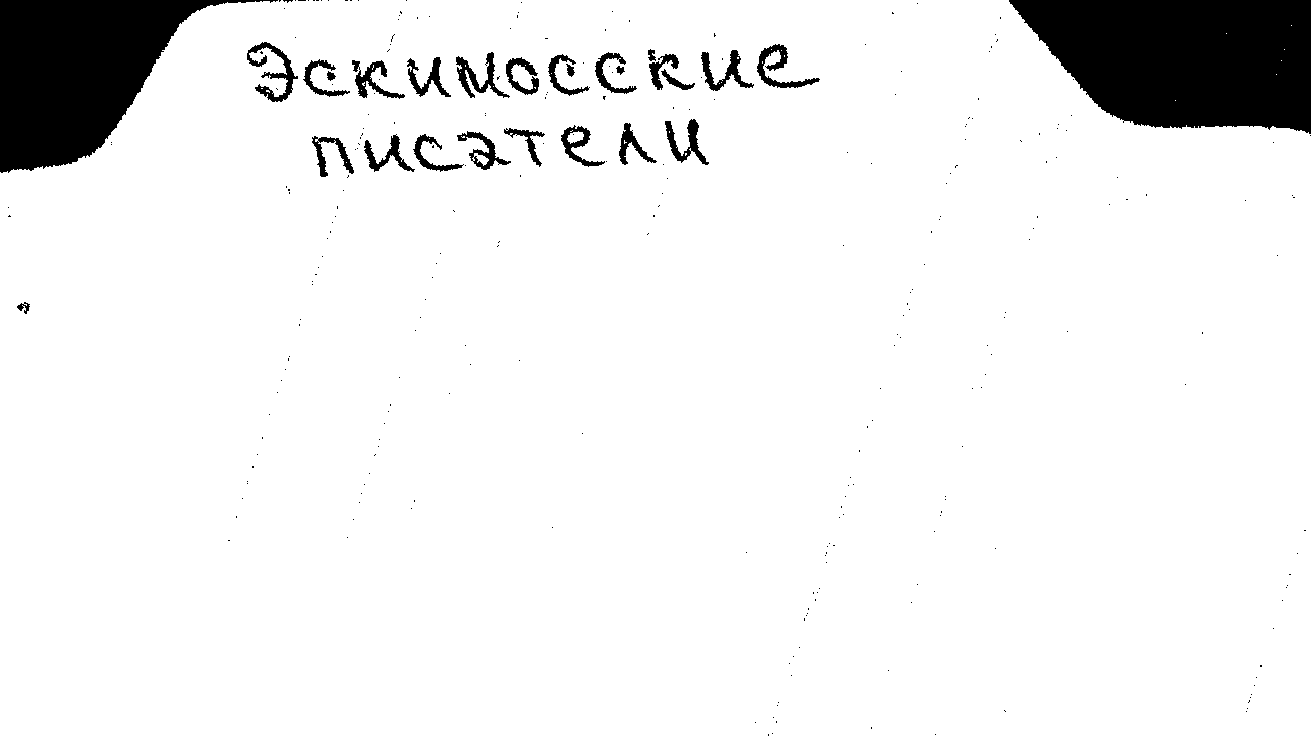 Эскимосские
писатели